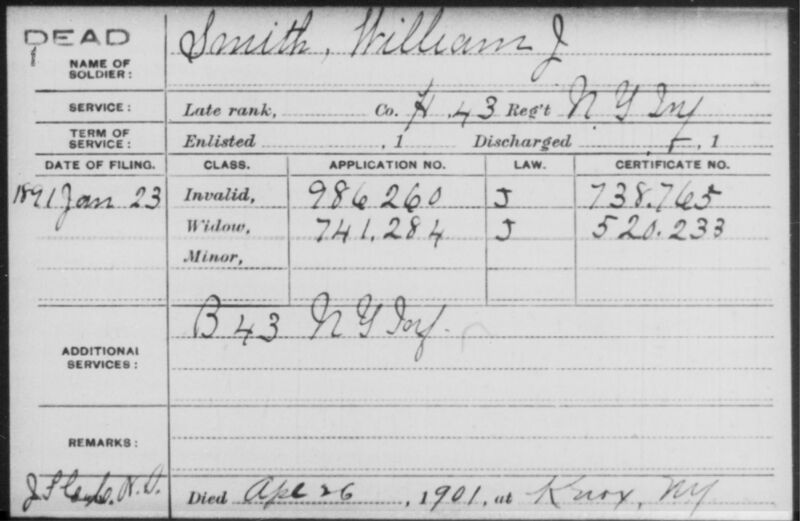 DEAD
NAME OF SOLDIER: Smith, William J
SERVICE: Late rank, Co. H, 43 Reg't N Y Inf
TERM OF SERVICE: Enlisted , 1 Discharged , 1
DATE OF FILING. CLASS. APPLICATION NO. LAW. CERTIFICATE NO.
1891 Jan 23 Invalid, 986260 J 738.765
Widow, 741,284 J 520.233
Minor,
ADDITIONAL SERVICES: B 43 N Y Inf.
REMARKS:
Died Apl 26, 1901, at Knox, NY